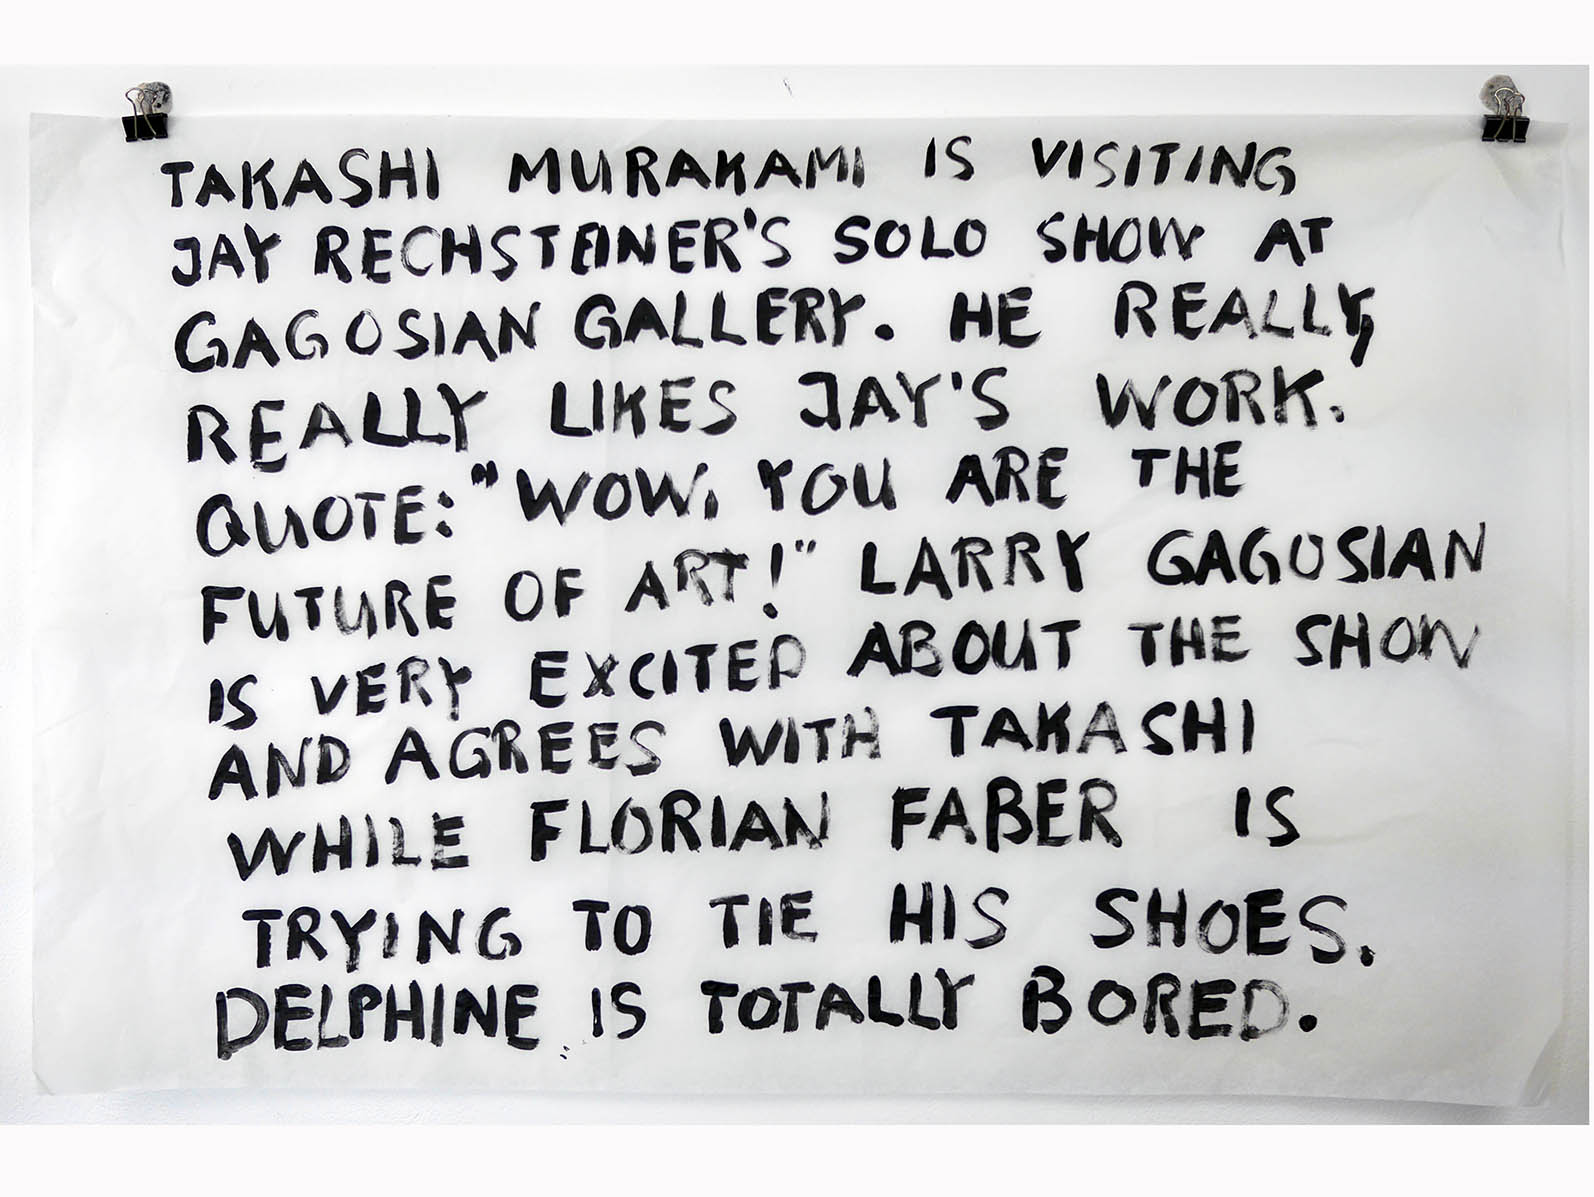 TAKASHI MURAKAMI IS VISITING
JAY RECHSTEINER'S SOLO SHOW AT
GAGOSIAN GALLERY. HE REALLY,
REALLY LIKES JAY'S WORK.
QUOTE: "WOW, YOU ARE THE
FUTURE OF ART!" LARRY GAGOSIAN
IS VERY EXCITED ABOUT THE SHOW
AND AGREES WITH TAKASHI
WHILE FLORIAN FABER IS
TRYING TO TIE HIS SHOES.
DELPHINE IS TOTALLY BORED.